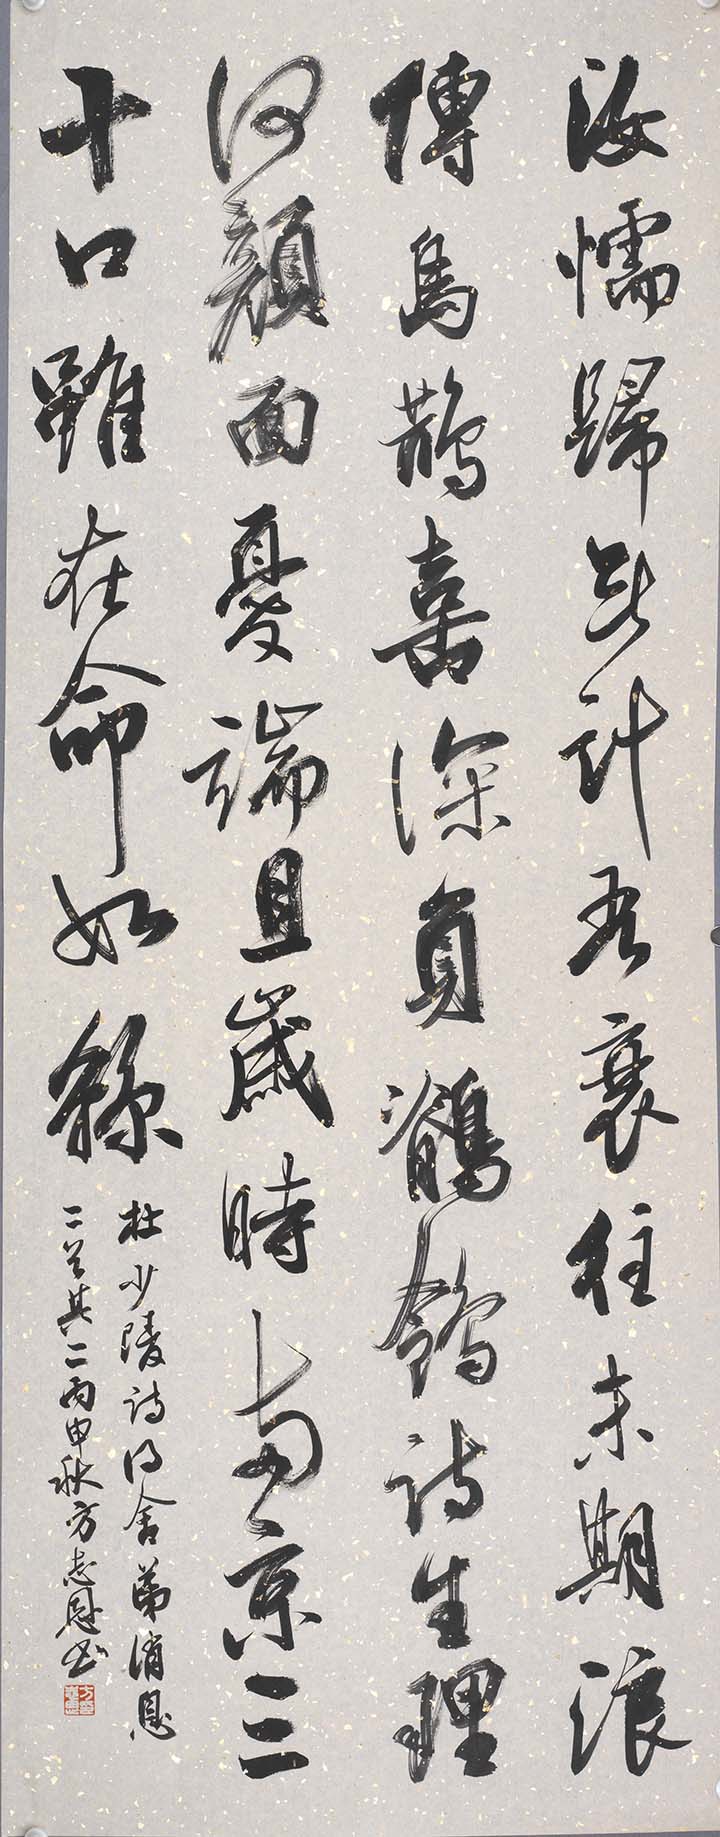 汝懦歸無計吾衰往未期浪
傳烏鵲喜深負鶺鴒詩生理
何顏面憂端且歲時兩京三
十口雖在命如絲
杜少陵詩得舍弟消息
二首其二丙申秋方志恩書